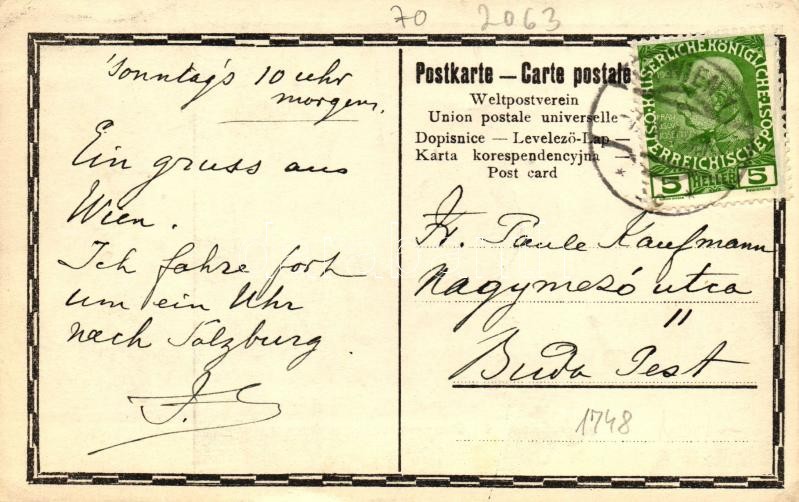 70 2063
Sonntag's 10 uhr
morgens.
Ein gruss aus
Wien.
Ich fahre fort
um ein Uhr
nach Salzburg.
Postkarte — Carte postale
Weltpostverein
Union postale universelle
Dopisnice — Levelezö-Lap
Karta korespondencyjna
Post card
KAISERLICHE KÖNIGLICHE
ÖSTERREICHISCHE POST
5 HELLER 5
Fr. Paule Kaufmann
Nagymezó utca
11
Buda Pest
1748